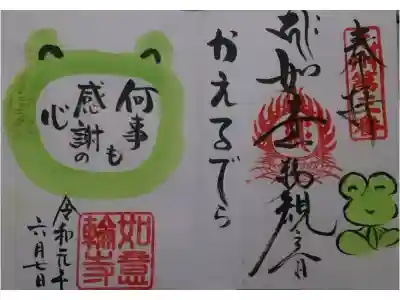 奉拝
如意輪観音
かえるでら
何事も
感謝の
心
令和元年
六月七日
如意
輪寺